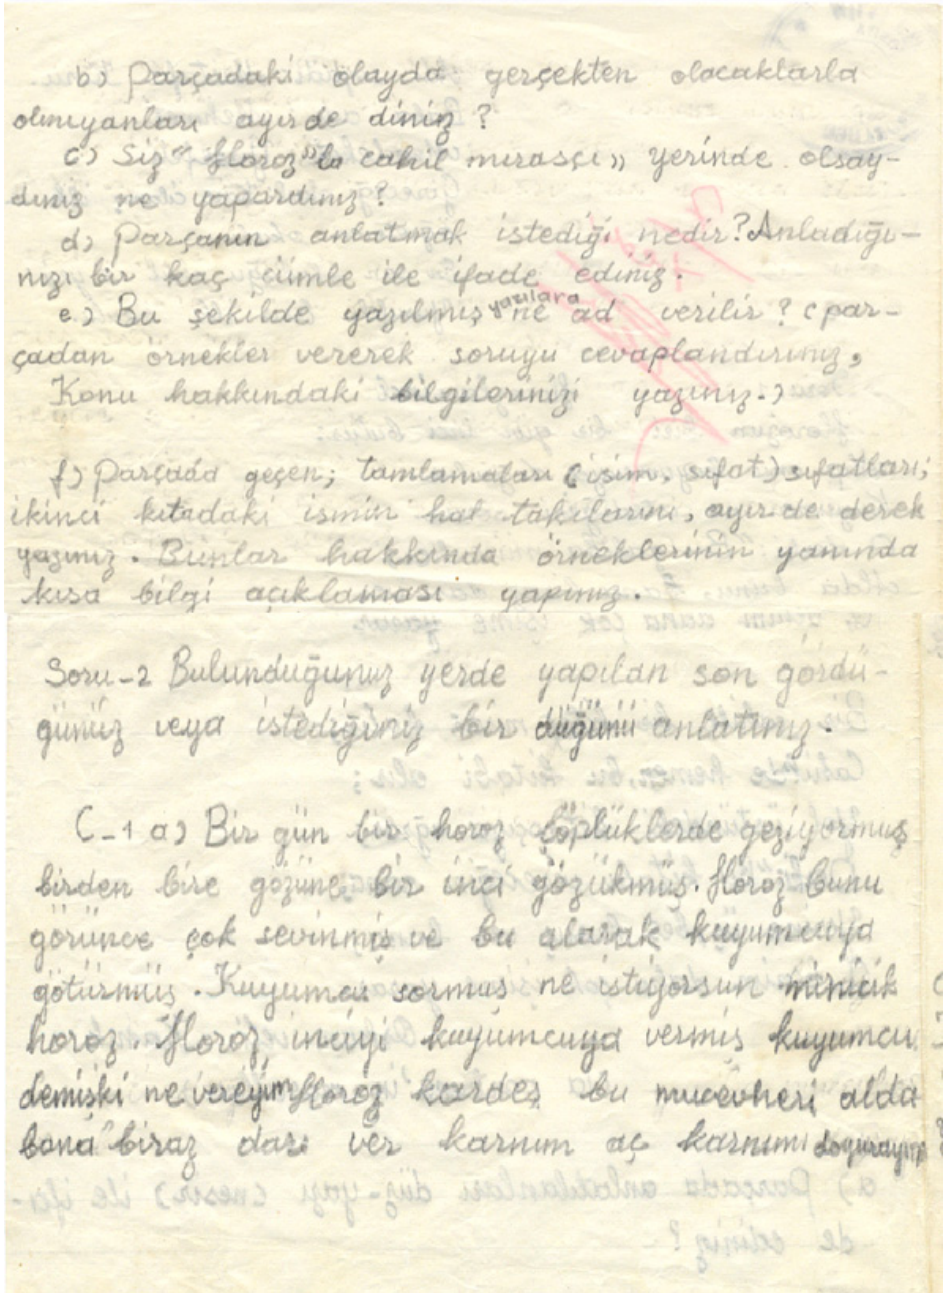 b) Parçadaki olayda gerçekten olacaklarla
olmıyanları ayırde diniz?
c) Siz "Horoz"la cahil mirasçı,, yerinde olsay-
dınız ne yapardınız?
d) Parçanın anlatmak istediği nedir? Anladığı-
nızı bir kaç cümle ile ifade ediniz.
e) Bu şekilde yazılmış yazılara ne ad verilir? (par-
çadan örnekler vererek soruyu cevaplandırınız,
Konu hakkındaki bilgilerinizi yazınız.)
f) Parçada geçen; tamlamaları (isim, sıfat) sıfatları;
ikinci kıtadaki ismin hal takılarını, ayır de derek
yazınız. Bunlar hakkında örneklerinin yanında
kısa bilgi açıklaması yapınız.
Soru-2 Bulunduğunuz yerde yapılan son gördü-
günüz veya istediğiniz bir düğünü anlatınız.
C-1 a) Bir gün bir horoz çöplüklerde geziyormuş
birden bire gözüne bir inci gözükmüş. Horoz bunu
görünce çok sevinmiş ve bu alarak kuyumcuya
götürmüş. Kuyumcu sormuş ne istiyorsun minicik
horoz. Horoz, inciyi kuyumcuya vermiş kuyumcu
demişki ne vereyim Horoz kardeş bu mucevheri alda
bana biraz darı ver karnım aç karnımı doyurayım
a) Parçada anlatılanları düz-yazı (nesir) ile ifa-
de ediniz?